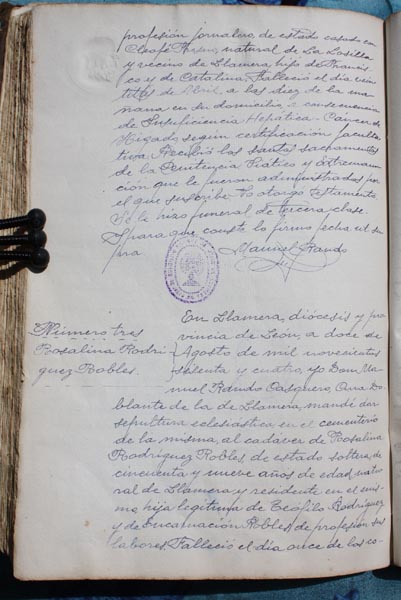 profesión jornalero de estado casado con
Cleofé natural de La Losilla
y vecino de Llamera, hijo de Francis
co y de Catalina. Falleció el día vein
de Abril, a las diez de la ma
ñana en su domicilio, a consecuencia
de Insuficiencia Hepática - Cáncer de
Hígado según certificación faculta
tiva. Recibió los santos sacramentos
de la Penitencia Viático y Extremaun
ción que le fueron administrados por
el que suscribe. No otorgó testamento
Se le hizo funeral de tercera clase.
Y para que conste lo firmo fecha ut su
pra.
Manuel Rando
Número tres
Rosalina Rodrí
guez Robles.
En Llamera, diócesis y pro
vincia de León, a doce de
Agosto de mil novecientos
setenta y cuatro, yo Don Ma
nuel Rando Casquero, Cura Do
blante de la de Llamera, mandé dar
sepultura eclesiástica en el cementerio
de la misma, al cadáver de Rosalina
Rodríguez Robles de estado soltera, de
cincuenta y nueve años de edad, natu
ral de Llamera y residente en el mis
mo hija legítima de Teófilo Rodríguez
y de Encarnación Robles, de profesión sus
labores. Falleció el día once de los co-